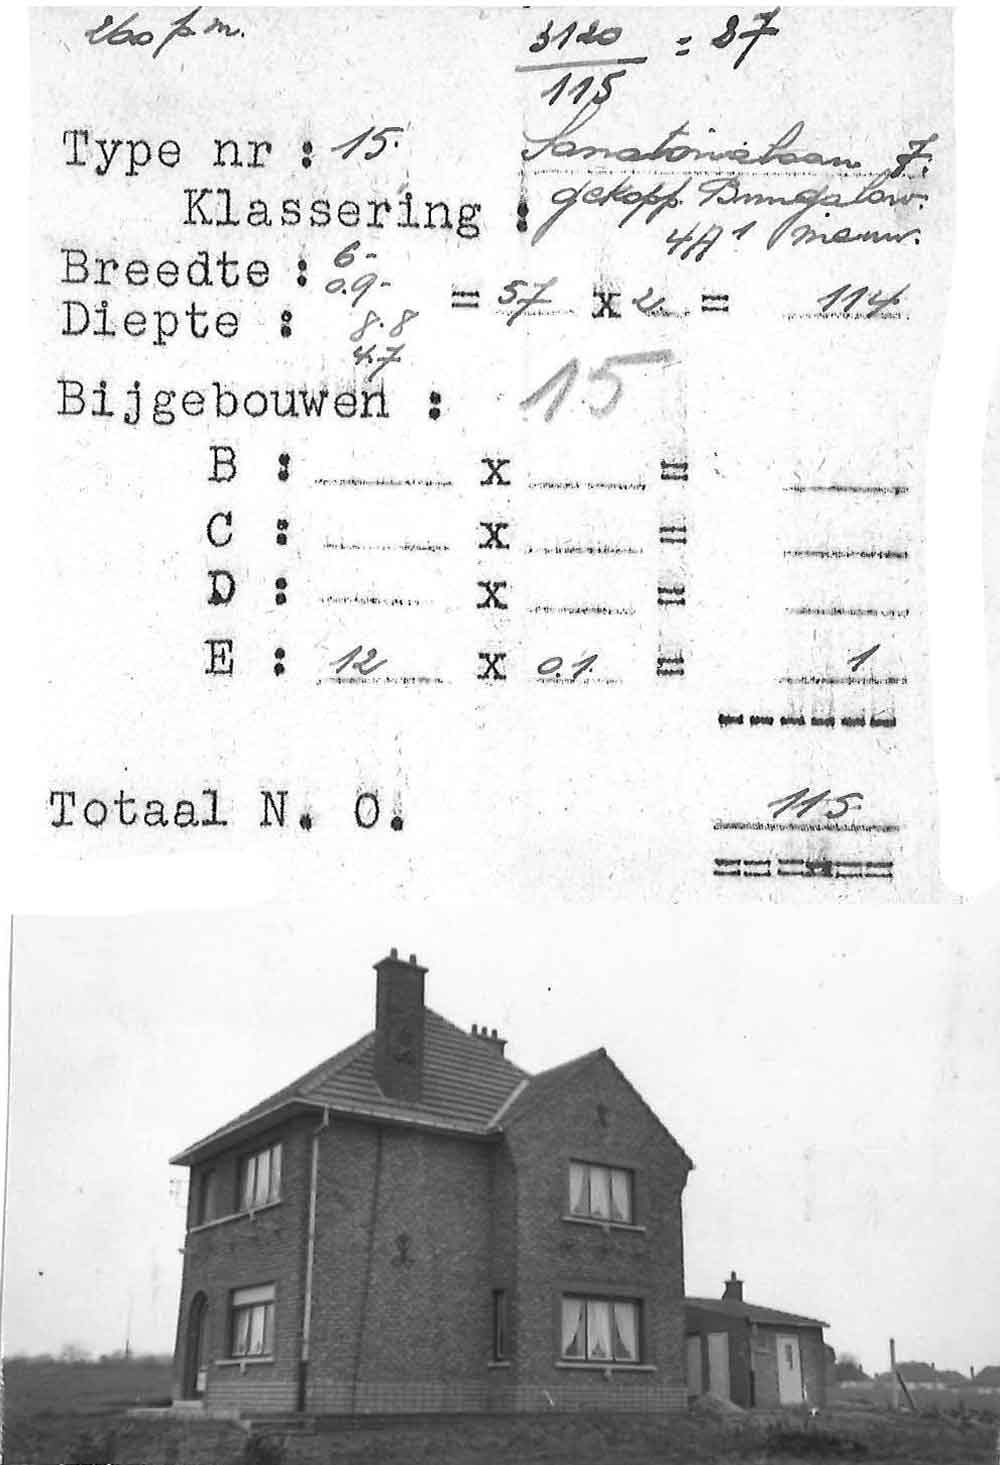 260 p.m. 3120 = 27
115
Type nr : 15. Sanatorialaan 7.
Klassering : gekopp. Bungalow.
4A 1 nieuw.
Breedte : 6-
0.9- = 57 x 2 = 114
Diepte : 8.8
4.7
Bijgebouwen : 15
B : x =
C : x =
D : x =
E : 12 x 0.1 = 1
Totaal N. O. 115